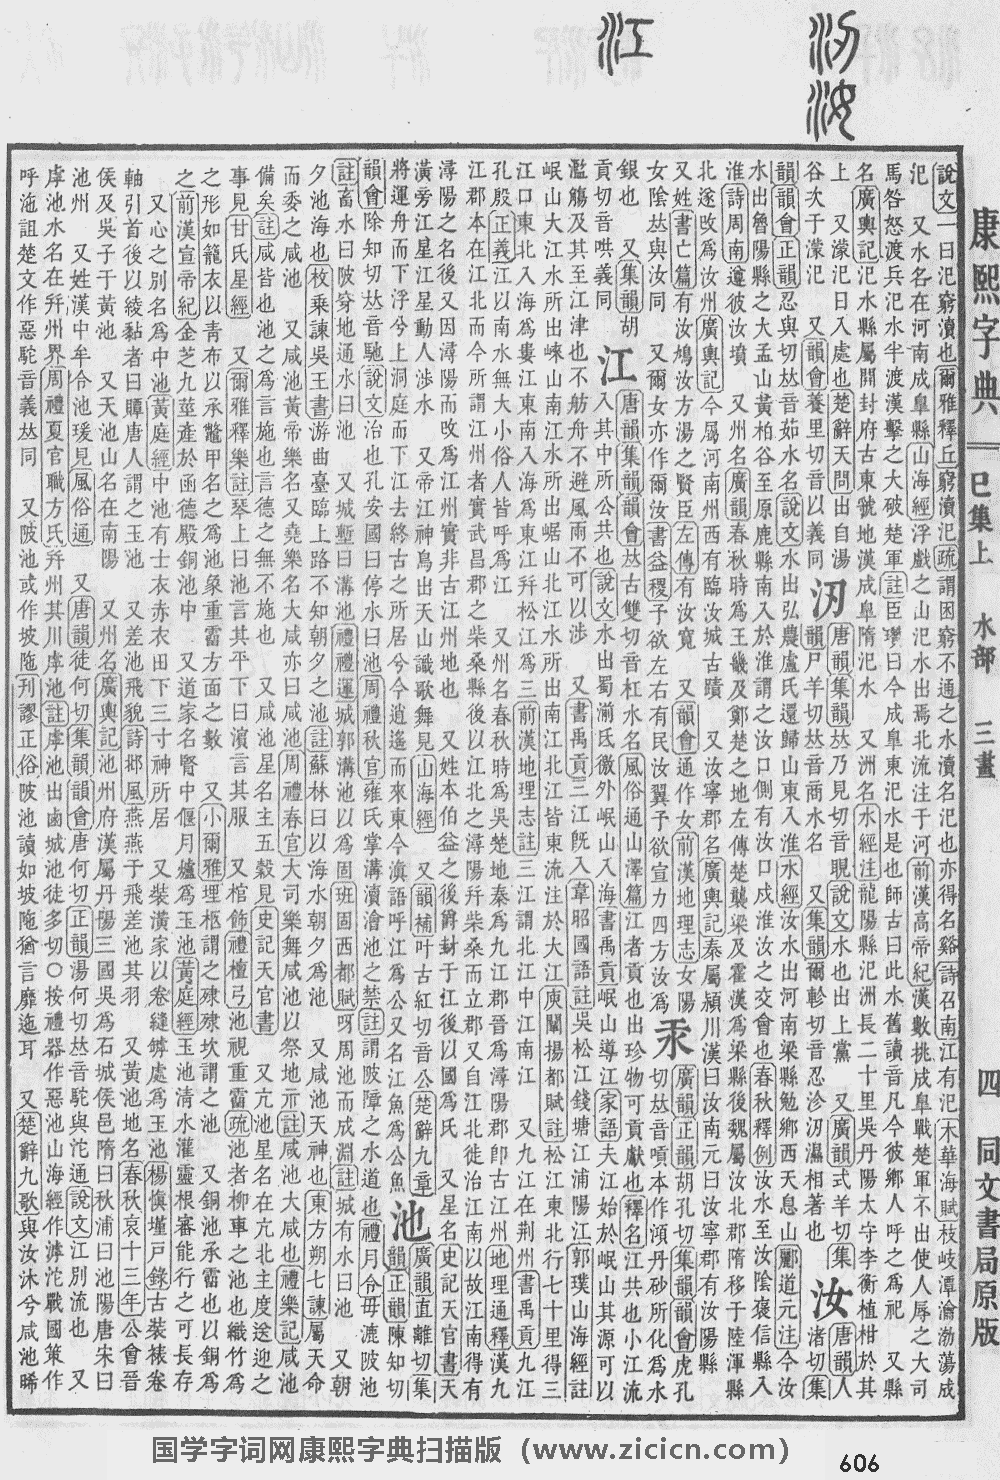 汝
江
康熙字典 巳集上 水部 三畫 四 同文書局原版
說文一曰汜窮瀆也爾雅釋丘窮瀆汜疏謂困窮不通之水瀆名汜也亦得名谿詩召南江有汜木華海賦枝岐潭瀹渤蕩成
汜 又水名在河南成皐縣山海經浮戲之山汜水出焉北流注于河前漢高帝紀漢數挑成皐戰楚軍不出使人辱之大司
馬咎怒渡兵汜水半渡漢擊之大破楚軍註臣瓚曰今成皐東汜水是也師古曰此水舊讀音凡今彼鄉人呼之爲祀 又縣
名廣輿記汜水縣屬開封府古東虢地漢成皐隋汜水 又洲名水經注龍陽縣汜洲長二十里吳丹陽太守李衡植柑於其
上 又濛汜日入處也楚辭天問出自湯
谷次于濛汜 又韻會養里切音以義同
唐韻集韻𠀤乃見切音晛說文水也出上黨 又廣韻式羊切集
韻尸羊切𠀤音商水名 又集韻爾軫切音忍沴濕相著也
汝 唐韻人渚切集
韻韻會正韻忍與切𠀤音茹水名說文水出弘農盧氏還歸山東入淮水經汝水出河南梁縣勉鄉西天息山酈道元注今汝
水出魯陽縣之大盂山黃柏谷至原鹿縣南入於淮謂之汝口側有汝口戍淮汝之交會也春秋釋例汝水至汝陰褒信縣入
淮詩周南遵彼汝墳 又州名廣韻春秋時爲王畿及鄭楚之地左傳楚襲梁及霍漢爲梁縣後魏屬汝北郡隋移于陸渾縣
北遂改爲汝州廣輿記今屬河南州西有臨汝城古蹟 又汝寧郡名廣輿記秦屬潁川漢曰汝南元曰汝寧郡有汝陽縣
又姓書亡篇有汝鳩汝方湯之賢臣左傳有汝寬 又韻會通作女前漢地理志女陽
女陰𠀤與汝同 又爾女亦作爾汝書益稷予欲左右有民汝翼予欲宣力四方汝爲
汞 廣韻正韻胡孔切集韻韻會虎孔
切𠀤音嗊本作澒丹砂所化爲水
銀也 又集韻胡
貢切音哄義同
江 唐韻集韻韻會𠀤古雙切音杠水名風俗通山澤篇江者貢也出珍物可貢獻也釋名江共也小江流
入其中所公共也說文水出蜀湔氐徼外岷山入海書禹貢岷山導江家語夫江始於岷山其源可以
濫觴及其至江津也不舫舟不避風雨不可以涉 又書禹貢三江旣入韋昭國語註吳松江錢塘江浦陽江郭璞山海經註
岷山大江水所出崍山南江水所出崌山北江水所出南江北江皆東流注於大江庾闡揚都賦註松江東北行七十里得三
江口東北入海爲婁江東南入海爲東江幷松江爲三前漢地理志註三江謂北江中江南江 又九江在荆州書禹貢九江
孔殷正義江以南水無大小俗人皆呼爲江 又州名春秋時爲吳楚地秦爲九江郡晉爲潯陽郡卽古江州地理通釋漢九
江郡本在江北而今所謂江州者實武昌郡之柴桑縣後以江北之潯陽幷柴桑而立郡又自江北徙治江南以故江南得有
潯陽之名後又因潯陽而改爲江州實非古江州地也 又姓本伯益之後爵封于江後以國爲氏 又星名史記天官書天
潢旁江星江星動人涉水 又帝江神鳥出天山識歌舞見山海經 又韻補叶古紅切音公楚辭九章
將運舟而下浮兮上洞庭而下江去終古之所居兮今逍遙而來東今滇語呼江爲公又名江魚爲公魚
池 廣韻直離切集
韻正韻陳知切
韻會除知切𠀤音馳說文治也孔安國曰停水曰池周禮秋官雍氏掌溝瀆澮池之禁註謂陂障之水道也禮月令毋漉陂池
註畜水曰陂穿地通水曰池 又城塹曰溝池禮禮運城郭溝池以爲固班固西都賦呀周池而成淵註城有水曰池 又朝
夕池海也枚乗諫吳王書游曲臺臨上路不如朝夕之池註蘇林曰以海水朝夕爲池 又咸池天神也東方朔七諫屬天命
而委之咸池 又咸池黃帝樂名又堯樂名大咸亦曰咸池周禮春官大司樂舞咸池以祭地示註咸池大咸也禮樂記咸池
備矣註咸皆也池之爲言施也言德之無不施也 又咸池星名主五穀見史記天官書 又亢池星名在亢北主度送迎之
事見甘氏星經 又爾雅釋樂註琴上曰池言其平下曰濵言其服 又棺飾禮檀弓池視重霤疏池者柳車之池也織竹爲
之形如籠衣以靑布以承鼈甲名之爲池象重霤方面之數 又小爾雅埋柩謂之殔殔坎謂之池 又銅池承霤也以銅爲
之前漢宣帝紀金芝九莖產於函德殿銅池中 又道家名腎中偃月爐爲玉池黃庭經玉池淸水灌靈根審能行之可長存
又心之別名爲中池黃庭經中池有士衣赤衣田下三寸神所居 又裝潢家以卷縫罅處爲玉池楊愼墐戸錄古裝裱卷
軸引首後以綾黏者曰贉唐人謂之玉池 又差池飛貌詩邶風燕燕于飛差池其羽 又黃池地名春秋哀十三年公會晉
侯及吳子于黃池 又天池山名在南陽 又州名廣輿記池州府漢屬丹陽三國吳爲石城侯邑隋曰秋浦曰池陽唐宋曰
池州 又姓漢中牟令池瑗見風俗通 又唐韻徒何切集韻韻會唐何切正韻湯何切𠀤音駝與沱通說文江別流也 又
虖池水名在幷州界周禮夏官職方氏幷州其川虖池註虖池出鹵城池徒多切○按禮器作惡池山海經作滹沱戰國策作
呼沲詛楚文作惡駝音義𠀤同 又陂池或作坡陁刊謬正俗陂池讀如坡陁猶言靡迤耳 又楚辭九歌與汝沐兮咸池晞
国学字词网康熙字典扫描版（www.zicicn.com）
606